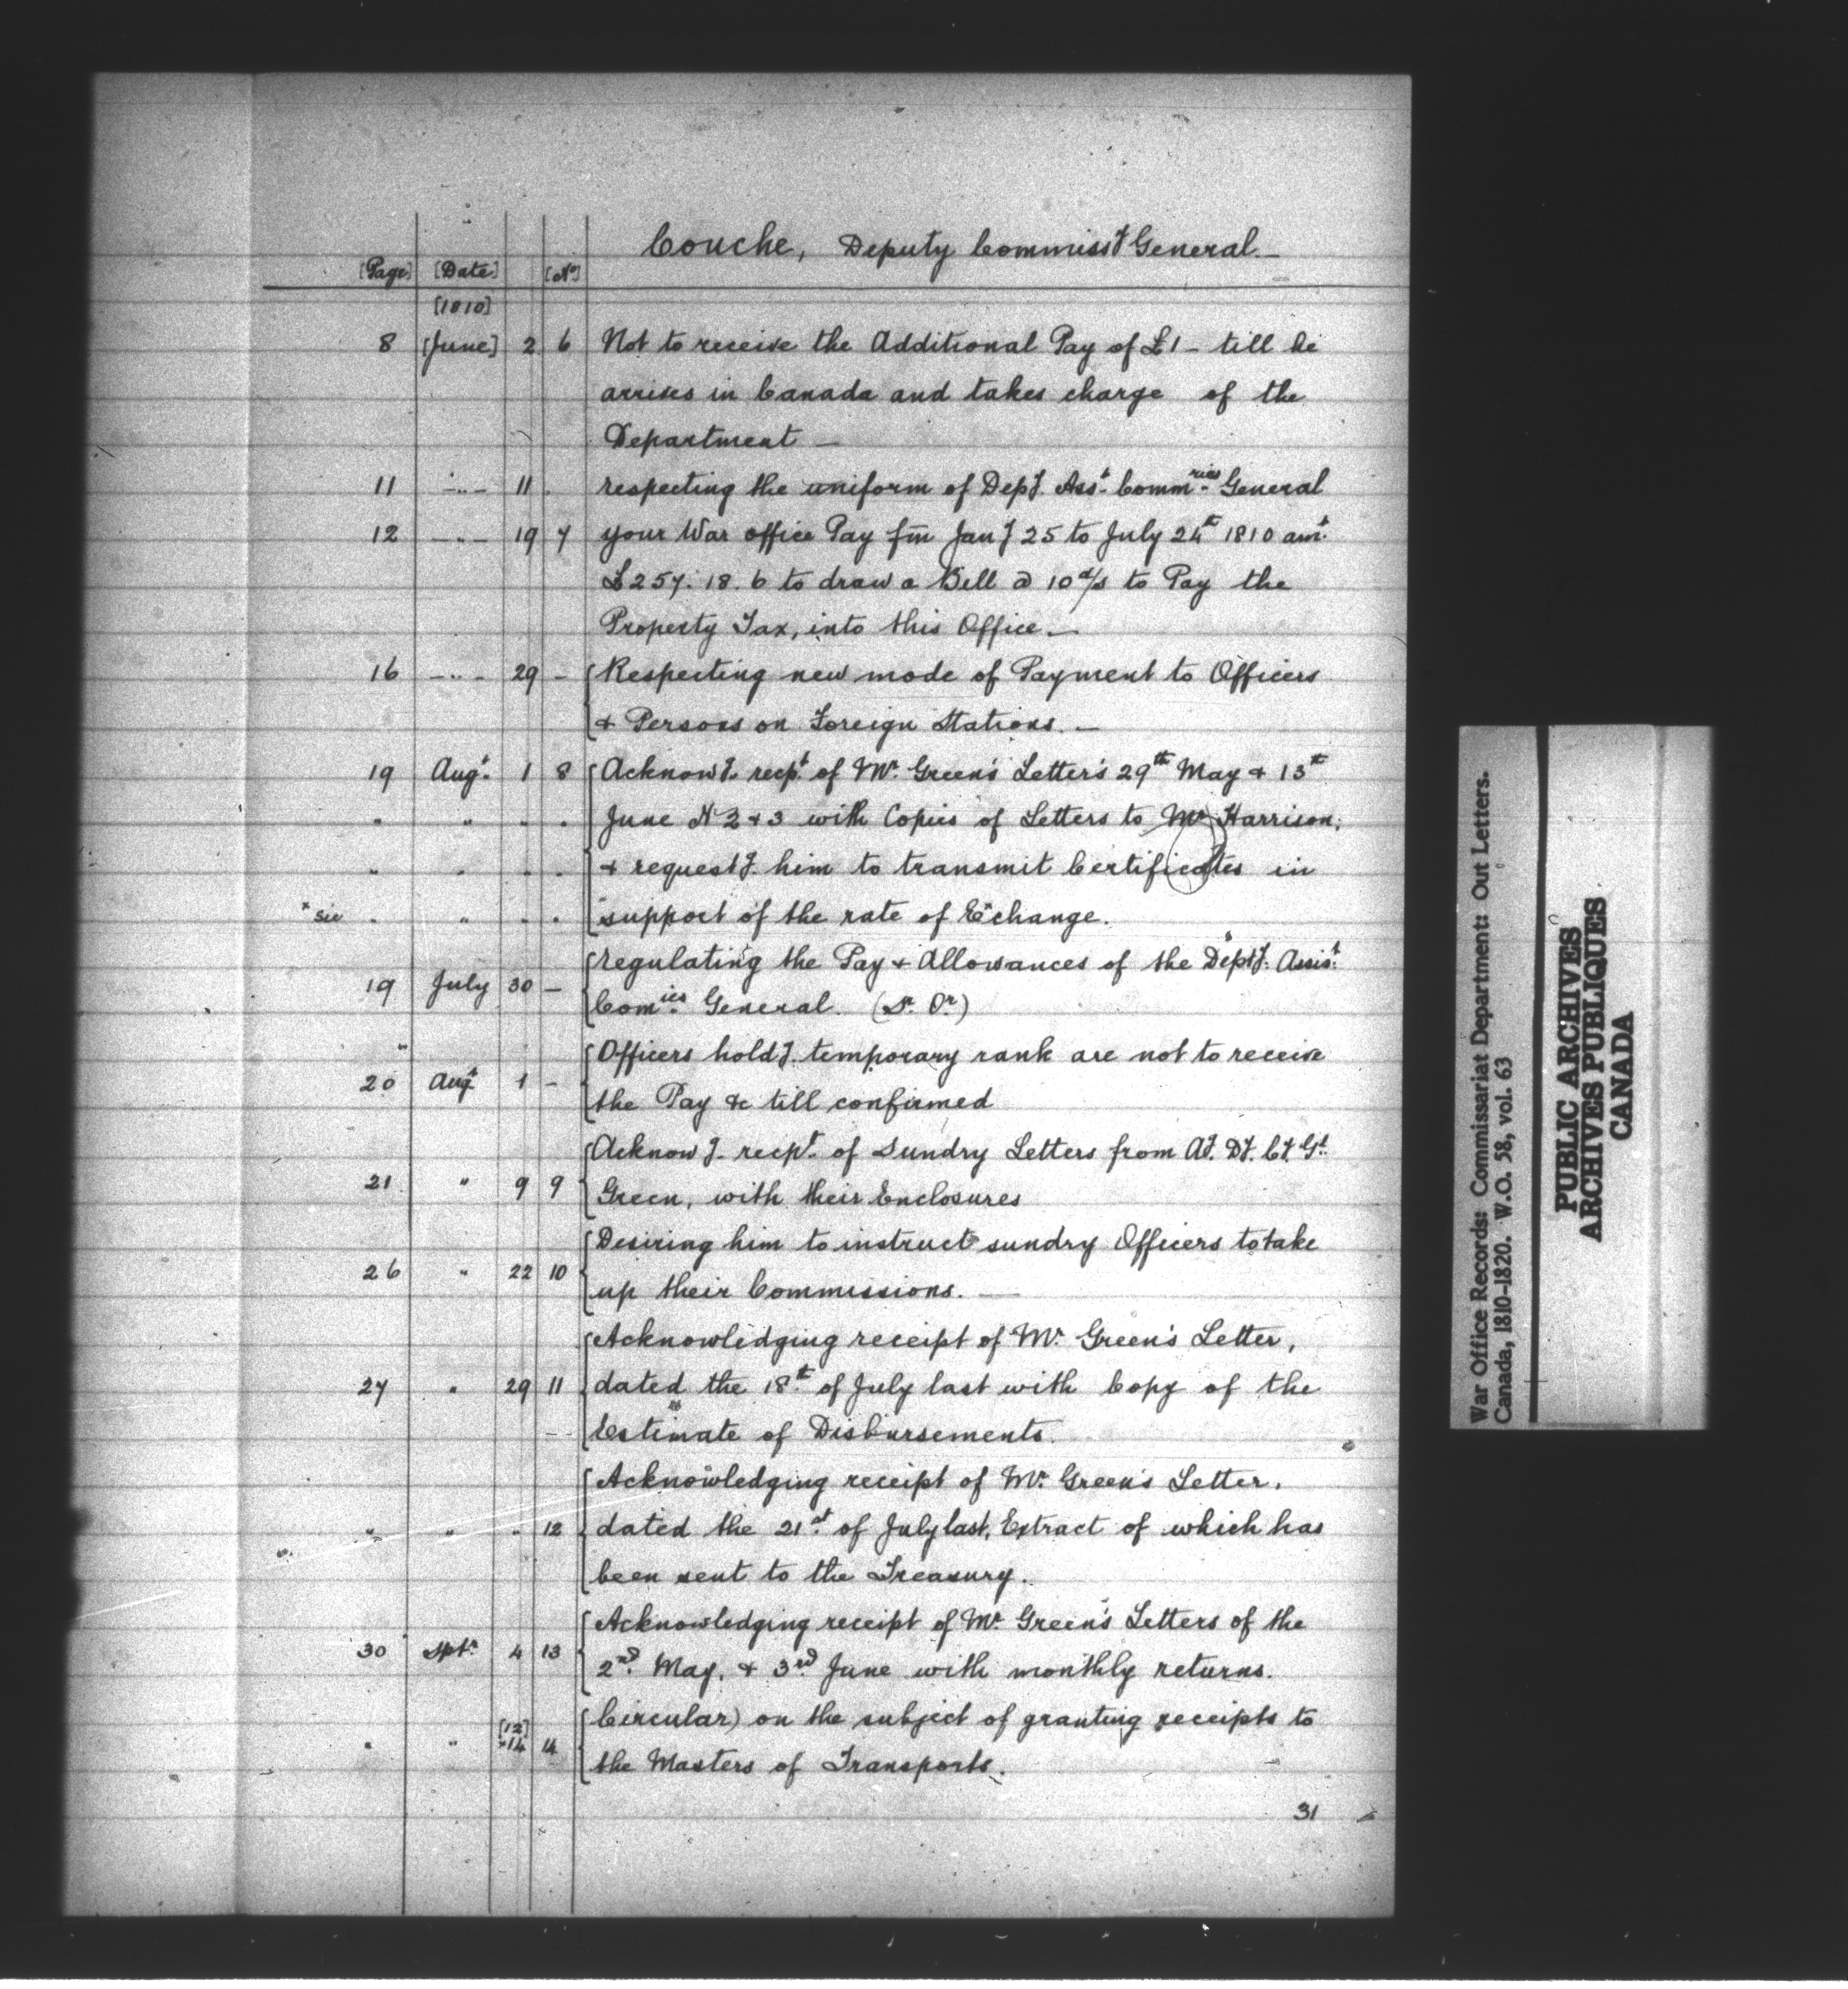 Couche, Deputy Commissy General.—
[Page] [Date] [No]
[1810]
8 [June] 2 6 Not to receive the Additional Pay of £1 - till he
arrives in Canada and takes charge of the
Department —
11 — " — 11 . respecting the uniform of Depy. Asst. Commries General
12 — " — 19 7 your War office Pay fm Jany 25 to July 24th 1810 amt.
£257. 18. 6 to draw a Bill @ 10d/s to Pay the
Property Tax, into this Office —
16 — " — 29 - Respecting new mode of Payment to Officers
& Persons on Foreign Stations. —
19 Augt. 1 8 Acknowg. recpt. of Mr. Green's Letter's 29th May & 13th
" " " " June N 2 & 3 with Copies of Letters to Mr Harrison,
" " " " & requestg. him to transmit Certificates in
* sic " " " " support of the rate of Exchange.
19 July 30 — regulating the Pay & Allowances of the Depty. Assist.
Comies. General. (Sr. Or.)
20 Augt 1 - Officers holdg. temporary rank are not to receive
the Pay &c till confirmed
21 " 9 9 Acknowg. recpt. of Sundry Letters from Ag. Dy. Cy. Gl.
Green, with their Enclosures
26 " 22 10 Desiring him to instruct sundry Officers to take
up their Commissions. —
Acknowledging receipt of Mr. Green's Letter,
27 " 29 11 dated the 18th. of July last with Copy of the
Estimate of Disbursements.
Acknowledging receipt of Mr. Green's Letter,
" " " 12 dated the 21st. of July last, Extract of which has
been sent to the Treasury.
30 Septr. 4 13 Acknowledging receipt of Mr. Green's Letters of the
2nd. May, & 3rd June with monthly returns.
" " [12] *14 14 Circular) on the subject of granting receipts to
the Masters of Transports.
31
War Office Records: Commissariat Department: Out Letters.
Canada, 1810-1820. W.O. 58, vol. 63
PUBLIC ARCHIVES
ARCHIVES PUBLIQUES
CANADA